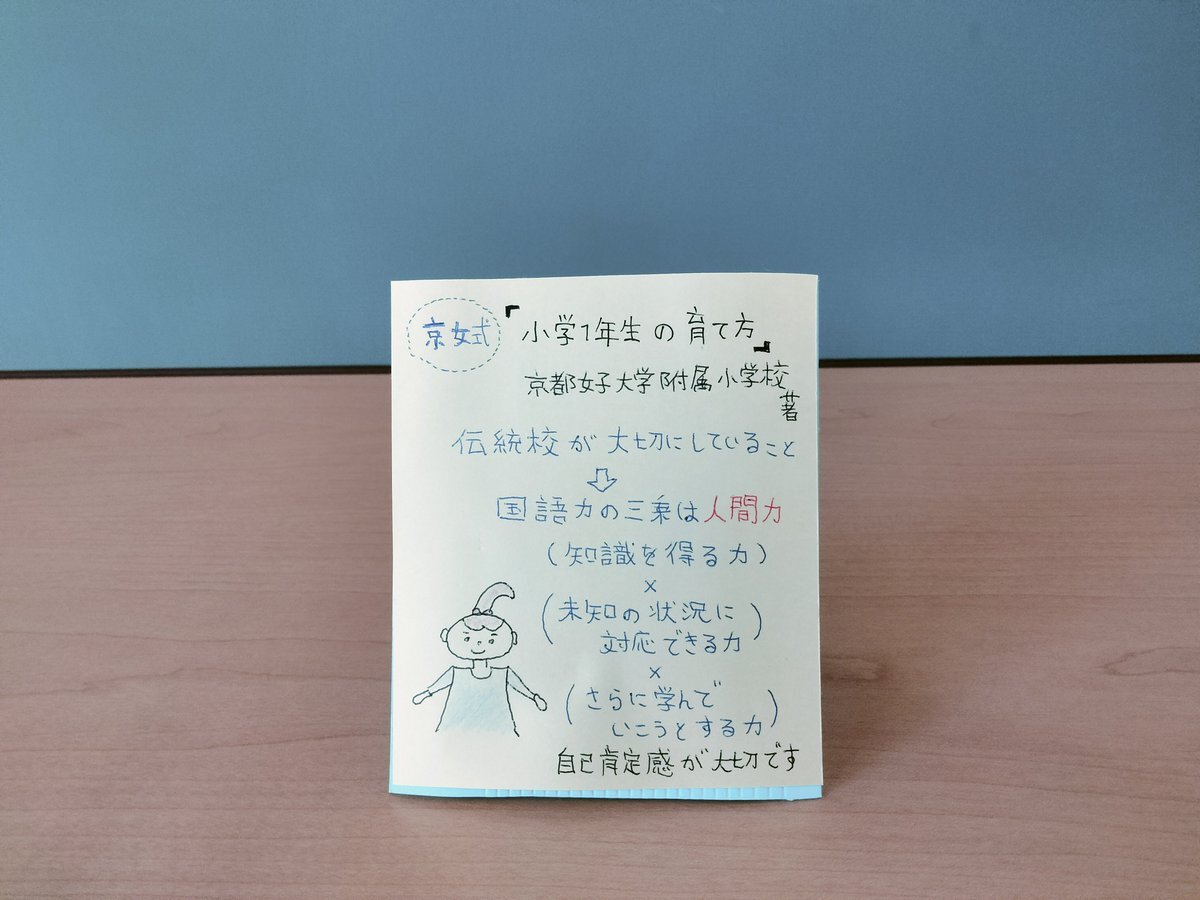 京女式『小学1年生の育て方』
京都女子大学附属小学校
著
伝統校が大切にしていること
⇩
国語力の三乗は人間力
(知識を得る力)
×
(未知の状況に
対応できる力)
×
(さらに学んで
いこうとする力)
自己肯定感が大切です